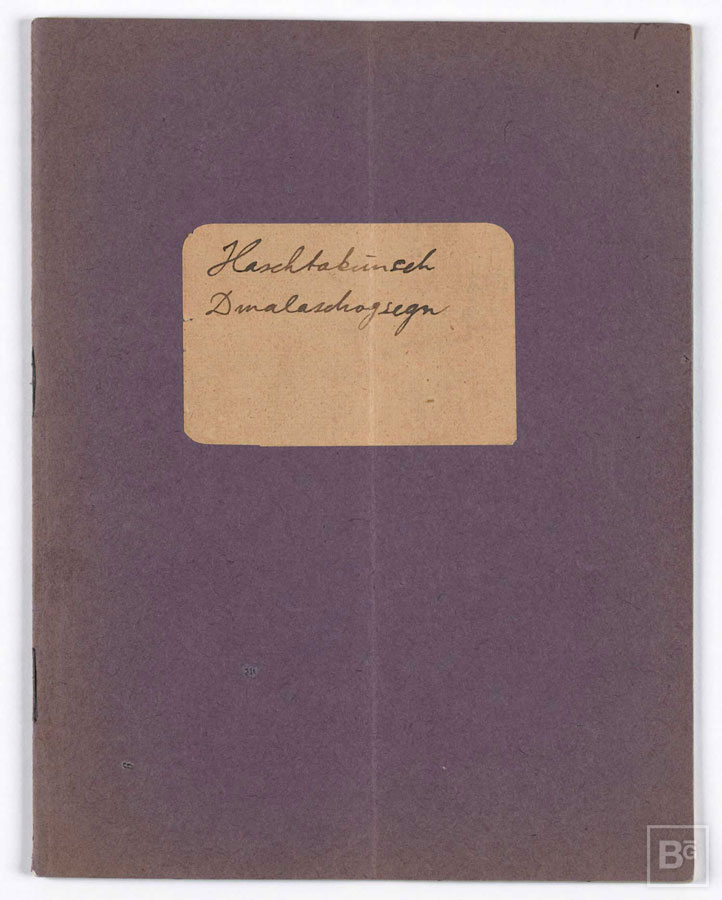 Haschtakunsch
Dmalaschogsegn
BG